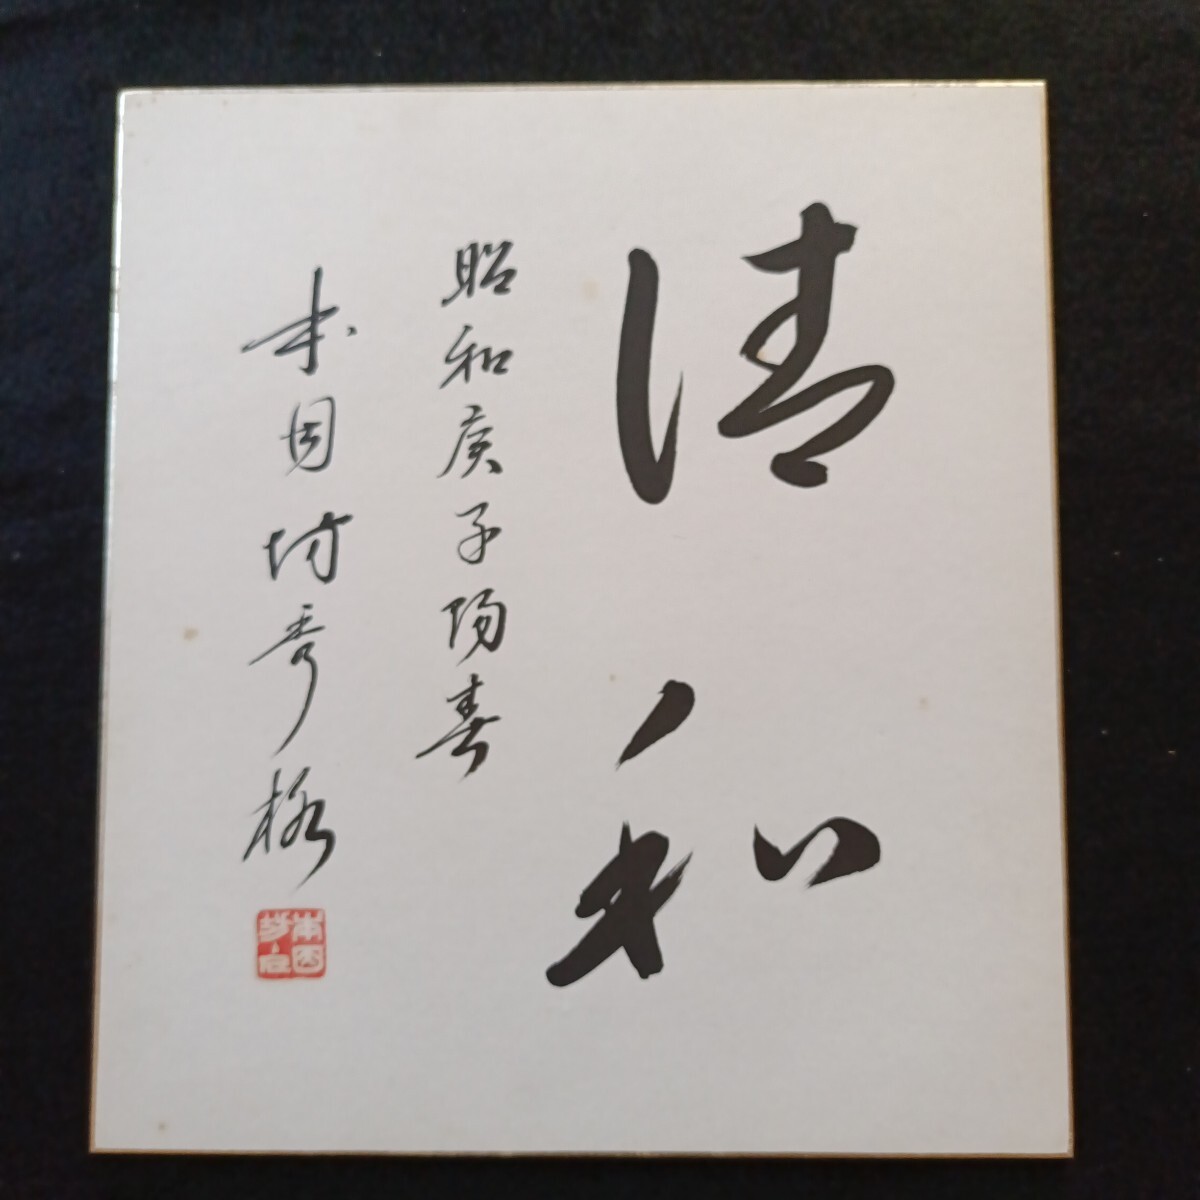 清和
昭和庚子陽春
本因坊秀格